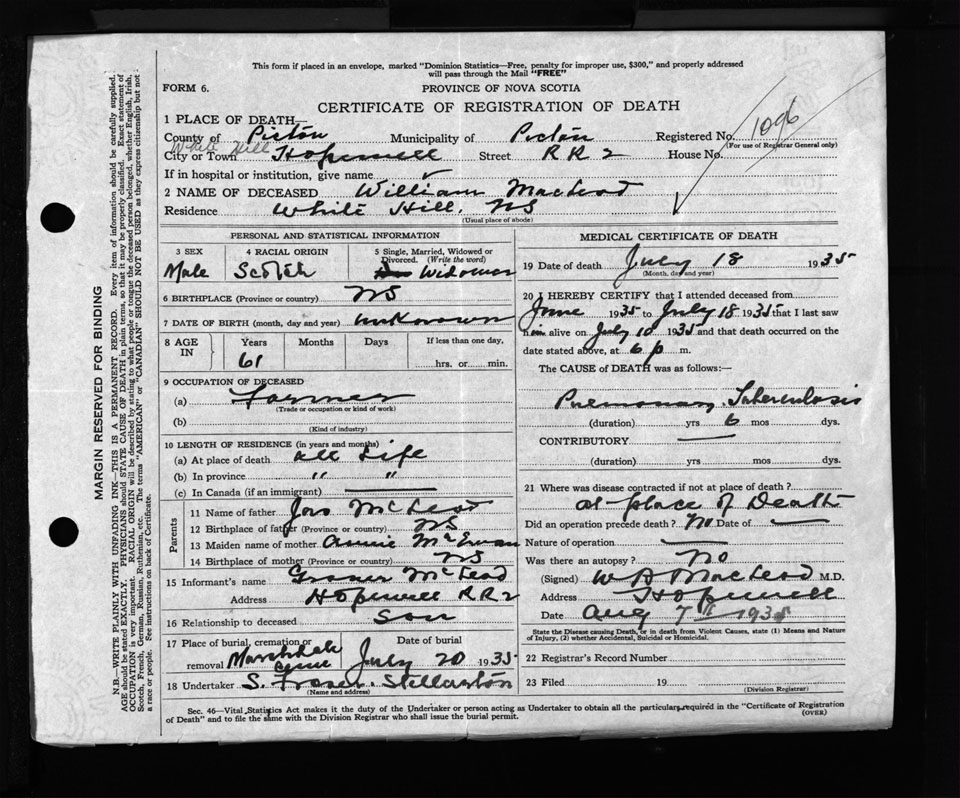 This form if placed in an envelope, marked "Dominion Statistics—Free, penalty for improper use, $300," and properly addressed
will pass through the Mail "FREE"
FORM 6.
PROVINCE OF NOVA SCOTIA
CERTIFICATE OF REGISTRATION OF DEATH
1 PLACE OF DEATH—
County of Pictou Municipality of Pictou Registered No. 1096
(For use of Registrar General only)
White Hill
City or Town Hopewell Street RR 2 House No.
If in hospital or institution, give name
2 NAME OF DECEASED William MacLeod
Residence White Hill, NS
(Usual place of abode)
PERSONAL AND STATISTICAL INFORMATION
3 SEX 4 RACIAL ORIGIN 5 Single, Married, Widowed or
Divorced. (Write the word)
Male Scotch Widower
6 BIRTHPLACE (Province or country) NS
7 DATE OF BIRTH (month, day and year) unknown
8 AGE IN Years Months Days If less than one day,
61 hrs. or min.
9 OCCUPATION OF DECEASED
(a) Farmer
(Trade or occupation or kind of work)
(b)
(Kind of industry)
10 LENGTH OF RESIDENCE (in years and months)
(a) At place of death all Life
(b) In province " "
(c) In Canada (if an immigrant)
Parents
11 Name of father Jas McLeod
12 Birthplace of father (Province or country) NS
13 Maiden name of mother Annie McEwan
14 Birthplace of mother (Province or country) NS
15 Informant's name Fraser McLeod
Address Hopewell RR2
16 Relationship to deceased Son
17 Place of burial, cremation or Date of burial
removal Marshdale July 20 1935
18 Undertaker S. Fraser Stellarton
(Name and address)
MEDICAL CERTIFICATE OF DEATH
19 Date of death July 18 1935
(Month, day and year)
20 I HEREBY CERTIFY that I attended deceased from
June 1935 to July 18 1935 that I last saw
him alive on July 10 1935 and that death occurred on the
date stated above, at 6 p m.
The CAUSE of DEATH was as follows:—
Pulmonary Tuberculosis
(duration) yrs 6 mos dys.
CONTRIBUTORY
(duration) yrs mos dys.
21 Where was disease contracted if not at place of death?
at place of Death
Did an operation precede death? No Date of
Nature of operation
Was there an autopsy? No
(Signed) W A MacLeod M.D.
Address Hopewell
Date Aug 7th 1935
State the Disease causing Death, or in death from Violent Causes, state (1) Means and Nature
of Injury, (2) whether Accidental, Suicidal or Homicidal.
22 Registrar's Record Number
23 Filed 19
(Division Registrar)
Sec. 46—Vital Statistics Act makes it the duty of the Undertaker or person acting as Undertaker to obtain all the particulars required in the "Certificate of Registration
of Death" and to file the same with the Division Registrar who shall issue the burial permit.
(OVER)
MARGIN RESERVED FOR BINDING
N.B.—WRITE PLAINLY WITH UNFADING INK—THIS IS A PERMANENT RECORD. Every item of information should be carefully supplied.
AGE should be stated EXACTLY. PHYSICIANS should STATE CAUSE OF DEATH in plain terms, so that it may be properly classified. Exact statement of
OCCUPATION is very important. RACIAL ORIGIN will be described by stating to what people or tongue the deceased person belonged, whether English, Irish,
Scotch, French, German, Russian, Ruthenian, etc. The terms "AMERICAN" or "CANADIAN" SHOULD NOT BE USED as they express citizenship but not
a race or people. See instructions on back of Certificate.